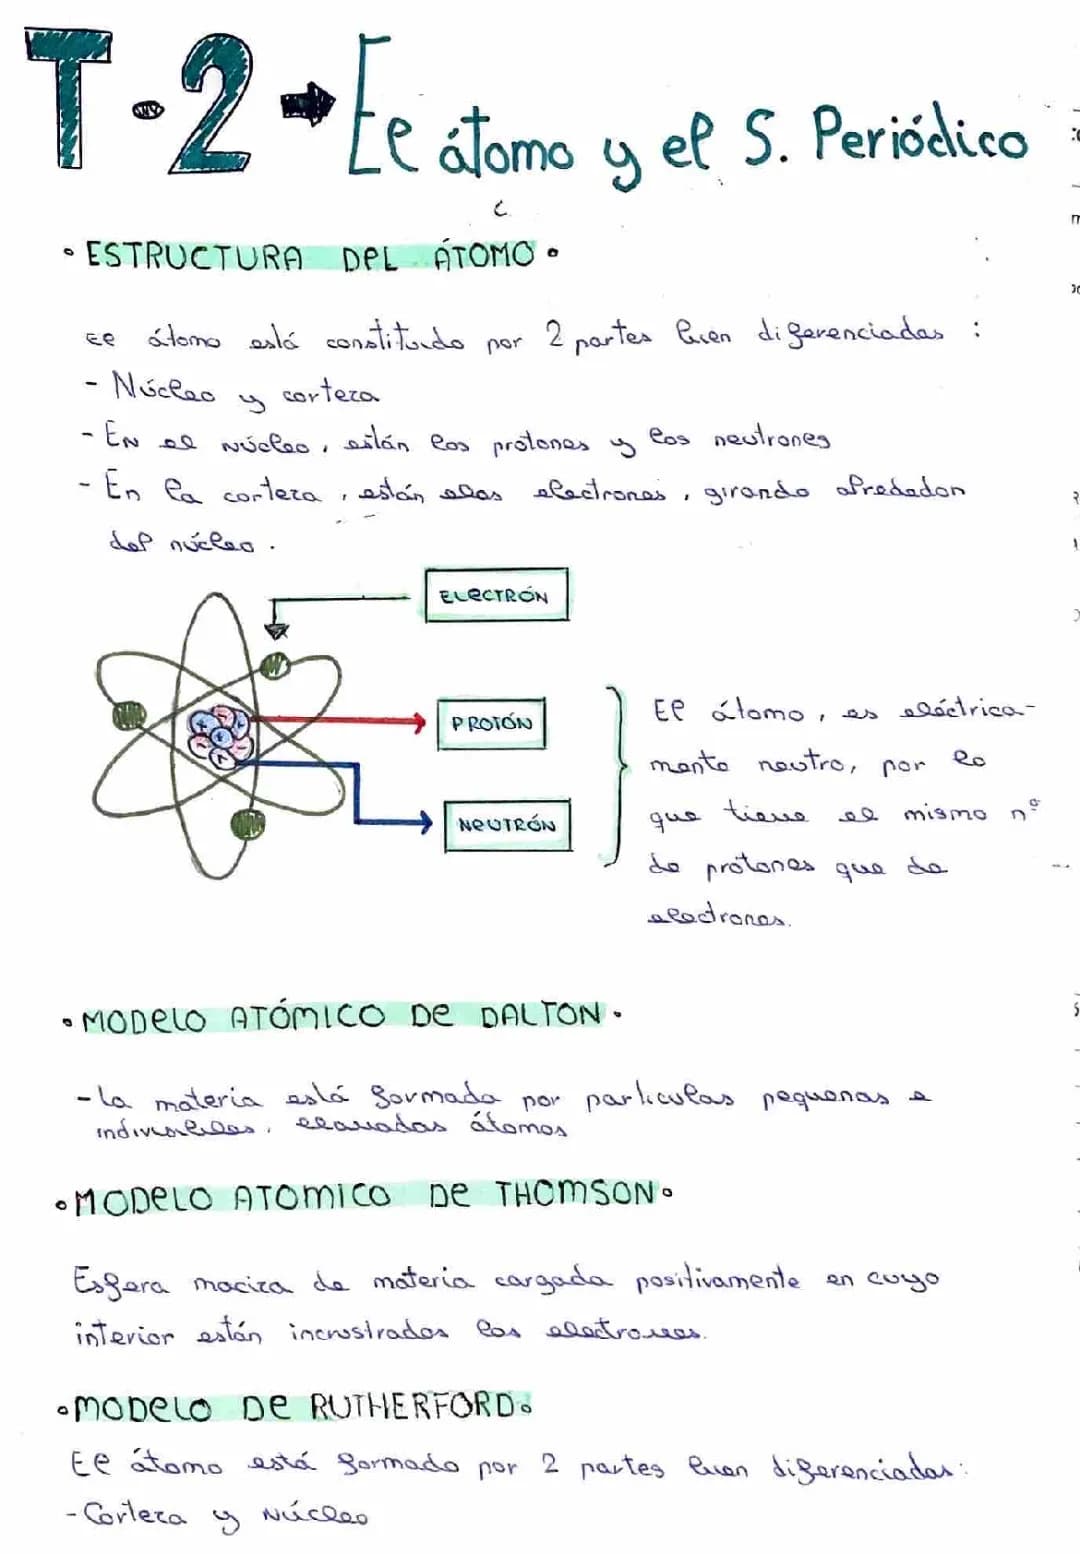 T-2 → El átomo y el S. Periódico
• ESTRUCTURA DEL ÁTOMO •
El átomo está constituido por 2 partes bien diferenciadas :
- Núcleo y corteza
- En el núcleo, están los protones y los neutrones
- En la corteza, están electrones, girando alrededor
del núcleo.
ELECTRÓN
PROTÓN
NEUTRÓN
El átomo, es eléctrica-
mente neutro, por lo
que tiene el mismo nº
de protones que de
electrones.
• MODELO ATÓMICO DE DALTON •
- La materia está formada por partículas pequenas e
indivisibles, llamadas átomos
• MODELO ATOMICO DE THOMSON •
Esfera maciza de materia cargada positivamente en cuyo
interior están incrustrados los electrones.
• MODELO DE RUTHERFORD •
El átomo está formado por 2 partes bien diferenciadas:
- Corteza y Núcleo